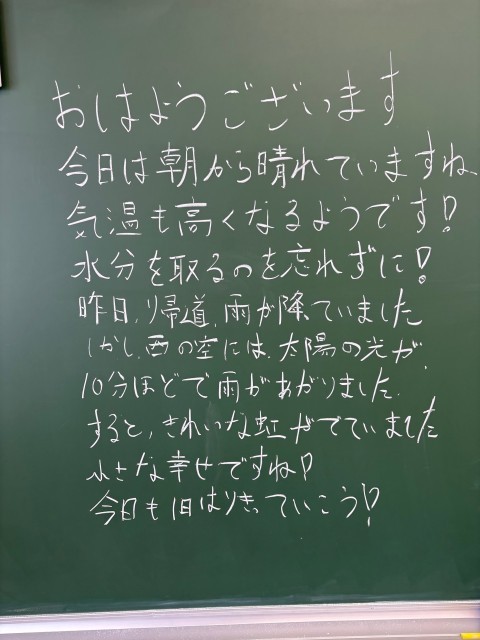 おはようございます
今日は朝から晴れていますね
気温も高くなるようです!
水分を取るのを忘れずに!
昨日,り帰道,雨が降ていました
しかし,西の空には,太陽の光が,
10分ほどで雨があがりました.
すると,きれいな虹がでていました
小さな幸せですね!
今日も1日はりきっていこう!